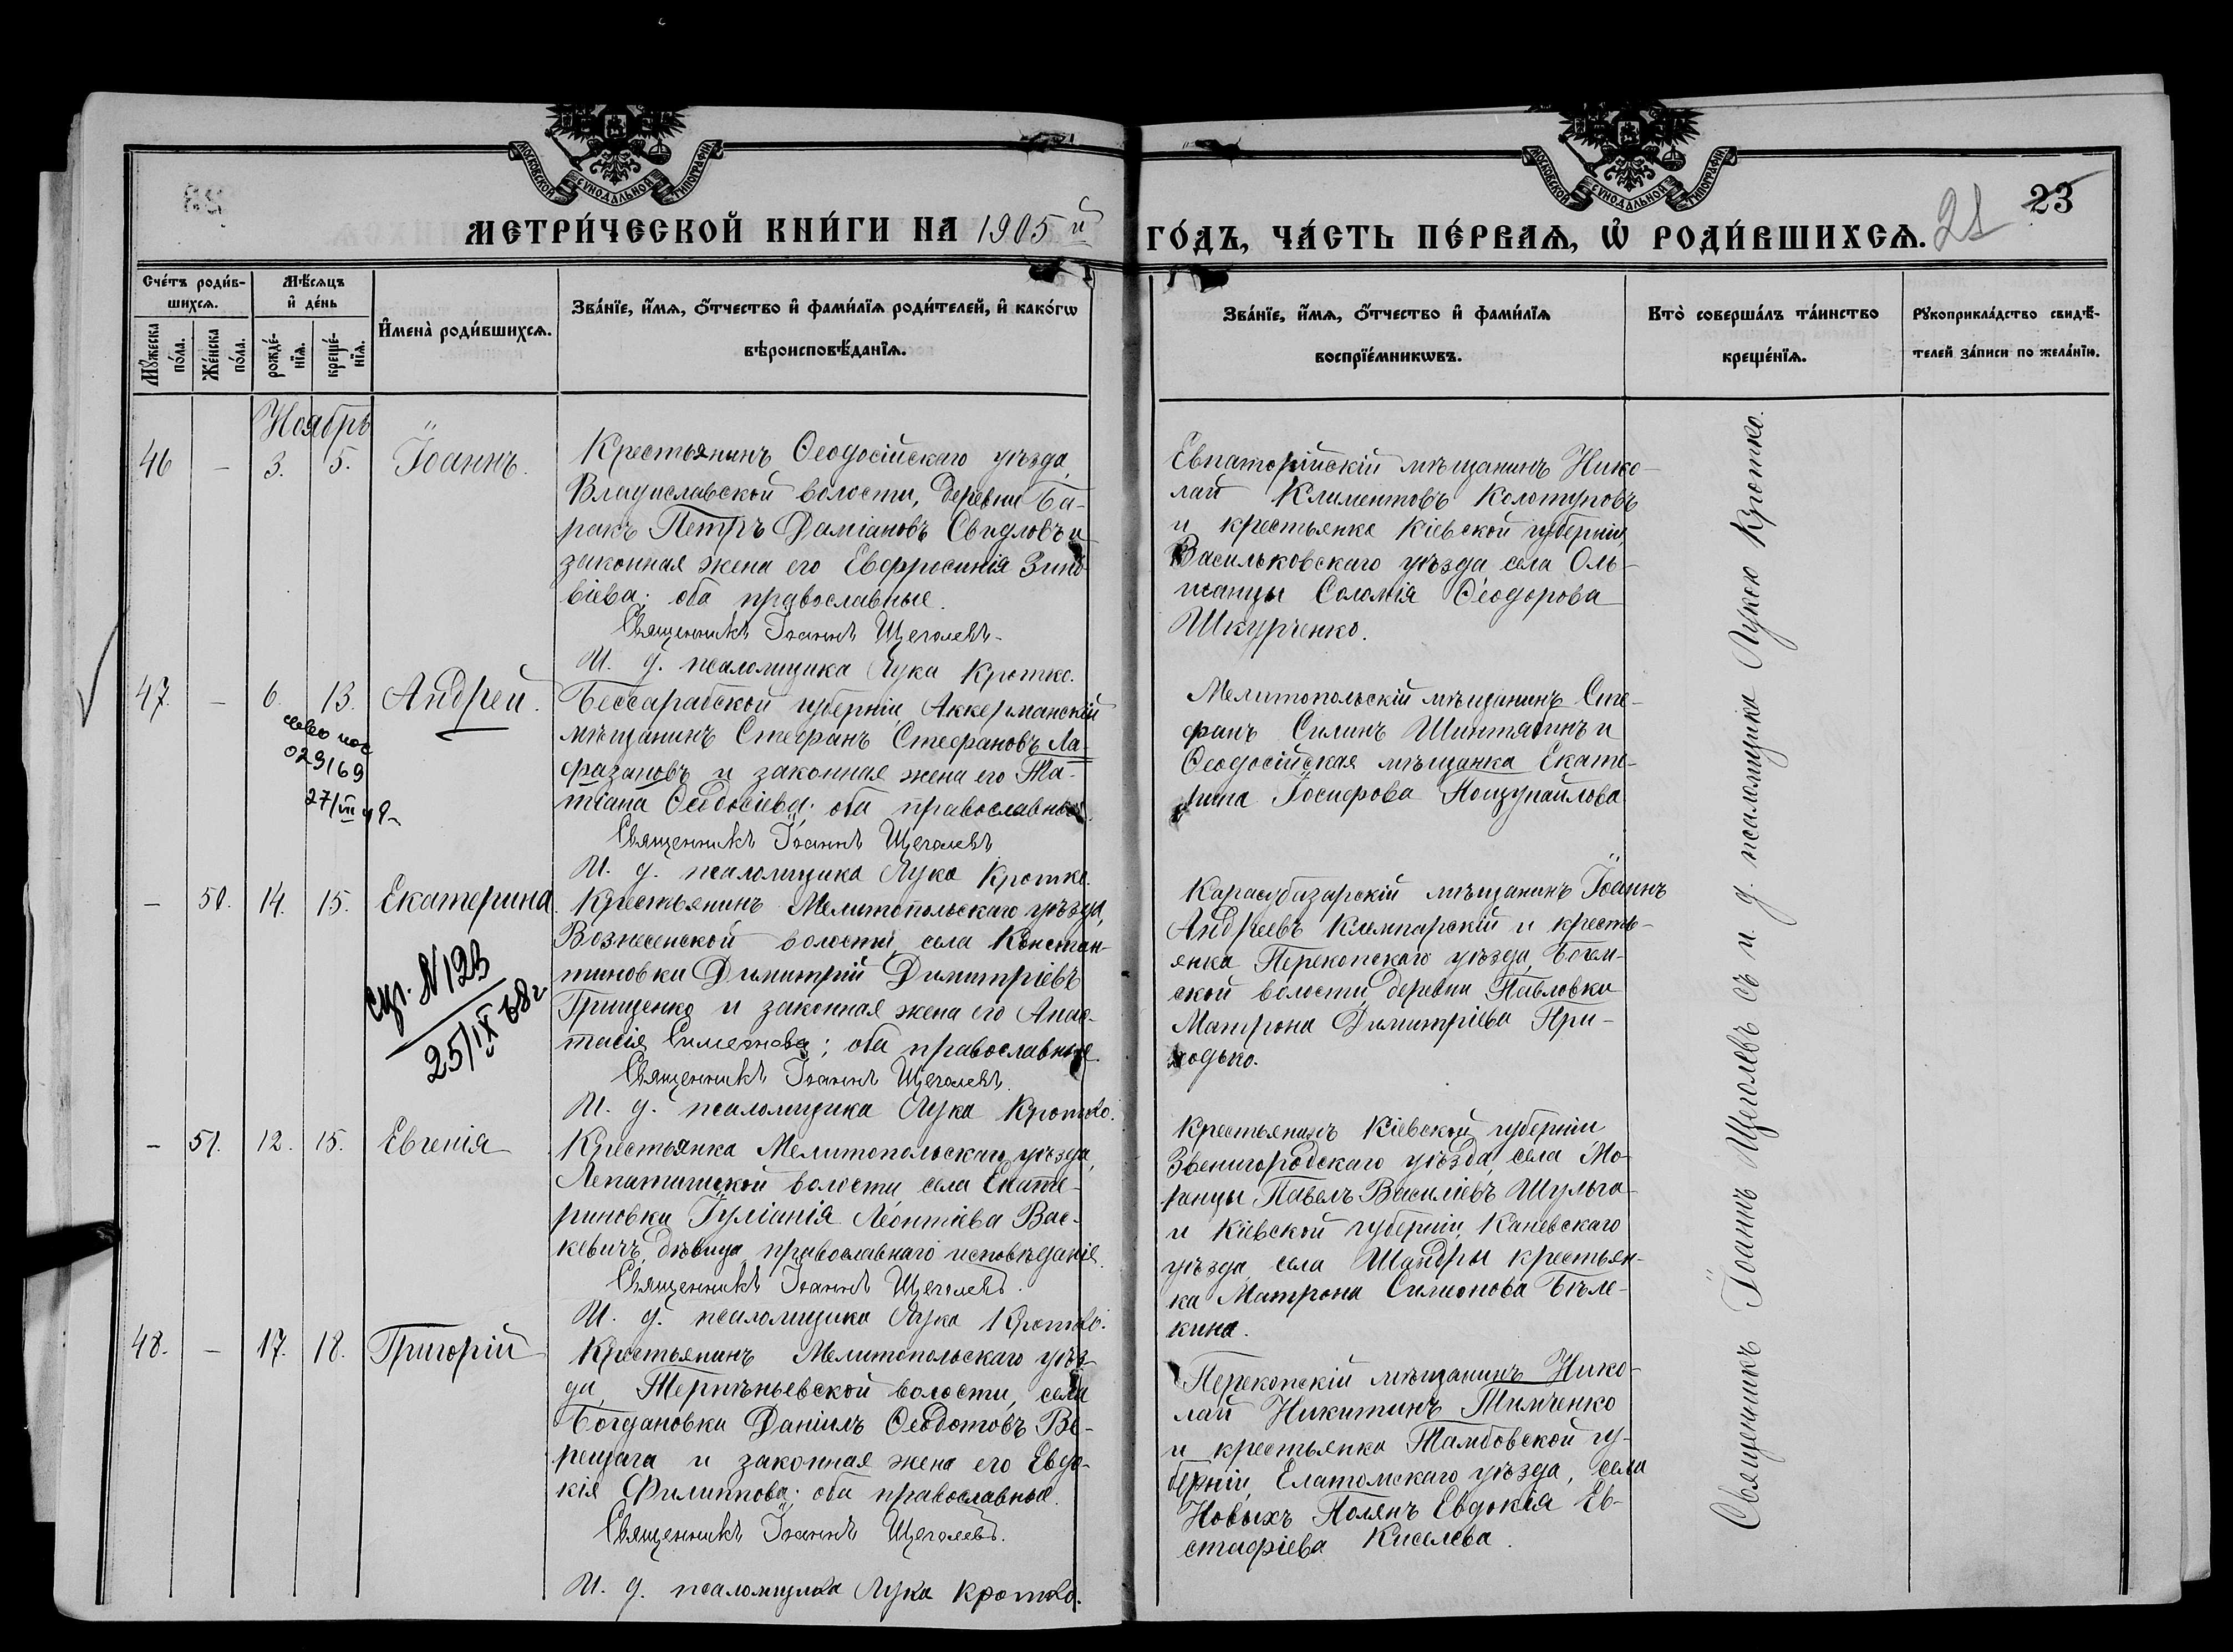 МОСКОВСКОЙ СѴНОДАЛЬНОЙ ТИПОГРАФІИ
МЕТРИ́ЧЕСКОЙ КНИ́ГИ НА 1905 й
Сче́тъ роди́в-
шихсѧ.
Мꙋ́жеска по́ла.
Же́нска по́ла.
Мѣ́сѧцъ
и҆ де́нь
рожде́-
нїѧ.
креще́-
нїѧ.
И҆мена̀ роди́вшихсѧ.
Зва́нїе, и҆́мѧ, ѻ҆́тчество и҆ фами́лїѧ роди́телей, и҆ како́гѡ
вѣроисповѣ́данїѧ.
Ноябрь
46 – 3. 5. Іоаннъ.
Крестьянинъ Ѳеодосійскаго уѣзда,
Владиславской волости, деревни Ба-
ракъ Петръ Даміановъ Свидловъ и
законная жена его Евфросинія Зино-
віева; оба православные.
Священникъ Іоаннъ Щеголевъ.
И. д. псаломщика Лука Кротко.
47. – 6. 13. Андрей.
029169
27/VII
Бессарабской губерніи Аккерманскій
мѣщанинъ Стефанъ Стефановъ Ла-
фазановъ и законная жена его Та-
тіана Ѳеодосіева; оба православные.
Священникъ Іоаннъ Щеголевъ
И. д. псаломщика Лука Кротко.
– 50. 14. 15. Екатерина.
N 123
25/IX 68 г.
Крестьянинъ Мелитопольскаго уѣзда,
Вознесенской волости, села Констан-
тиновки Димитрій Димитріевъ
Грищенко и законная жена его Анас-
тасія Симеонова; оба православные.
Священникъ Іоаннъ Щеголевъ.
И. д. псаломщика Лука Кротко.
– 51. 12. 15. Евгенія
Крестьянка Мелитопольскаго уѣзда,
Лепатихской волости, села Екате-
риновки Іуліанія Леонтіева Вас-
кевичъ, дѣвица, православнаго исповѣданія.
Священникъ Іоаннъ Щеголевъ.
И. д. псаломщика Лука Кротко.
48. – 17. 18. Григорій
Крестьянинъ Мелитопольскаго уѣз-
да, Терпѣньевской волости, села
Богдановки Даніилъ Ѳеодотовъ Ве-
рещага и законная жена его Евдо-
кія Филиппова; оба православные.
Священникъ Іоаннъ Щеголевъ.
И. д. псаломщика Лука Кротко.
МОСКОВСКОЙ СѴНОДАЛЬНОЙ ТИПОГРАФІИ
ГО́ДЪ, ЧА́СТЬ ПЕ́РВАѦ, Ѡ҆ РОДИ́ВШИХСѦ.
21
23
Зва́нїе, и҆́мѧ, ѻ҆́тчество и҆ фами́лїѧ
воспрїе́мникѡвъ.
Кто̀ соверша́лъ та́инство
креще́нїѧ.
Рꙋкоприкла́дство свидѣ́-
телей за́писи по жела́нїю.
Евпаторійскій мѣщанинъ Нико-
лай Климентовъ Колотуровъ
и крестьянка Кіевской губерніи,
Васильковскаго уѣзда села Оль-
шаницы Соломія Ѳеодорова
Шкурченко.
Мелитопольскій мѣщанинъ Сте-
фанъ Силинъ Шинтяпинъ и
Ѳеодосійская мѣщанка Екате-
рина Іосифова Пощупайлова.
Карасубазарскій мѣщанинъ Іоаннъ
Андреевъ Кимпарскій и кресть-
янка Перекопскаго уѣзда, Богем-
ской волости, деревни Павловки
Матрона Димитріева При-
ходько.
Крестьянинъ Кіевской губерніи
Звенигородскаго уѣзда, села Мо-
ринцы Павелъ Василіевъ Шульга
и Кіевской губерніи, Каневскаго
уѣзда, села Шандры крестьян-
ка Матрона Симеонова Бѣле-
кина.
Перекопскій мѣщанинъ Нико-
лай Никитинъ Тимченко
и крестьянка Тамбовской гу-
берніи, Елатомскаго уѣзда, села
Новыхъ Полянъ Евдокія Ев-
стафіева Киселева.
Священникъ Іоаннъ Щеголевъ съ и. д. псаломщика Лукою Кротко.